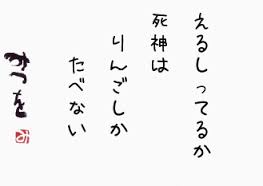 えるしってるか
死神は
りんごしか
たべない
みつを